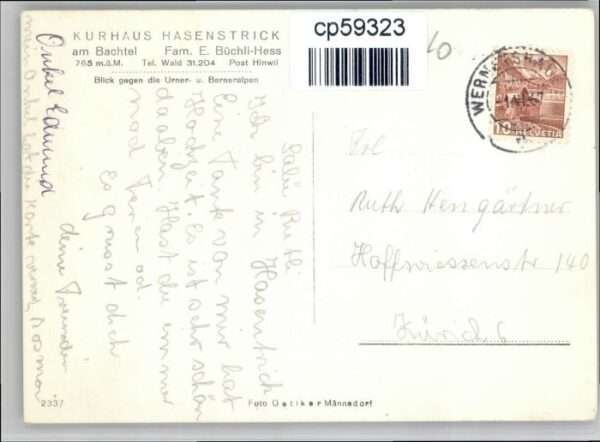 KURHAUS HASENSTRICK
am Bachtel Fam. E. Büchli-Hess
765 m.ü.M. Tel. Wald 31.204 Post Hinwil
Blick gegen die Urner- u. Berneralpen
cp59323
10 HELVETIA
Salü Rutli
Ich bin in Hasenstrick
Eine Tante von mir hat
Hochzeit. Es ist sehr schön
da oben. Hast du immer
noch Ferien
Es grüsst dich
deine Freundin
Onkel Edmund
mein Onkel hat die Karte
Frl
Ruth Hengärtner
Hoffwiesenstr 140
Zürich 6
2337
Foto Oetiker Männedorf